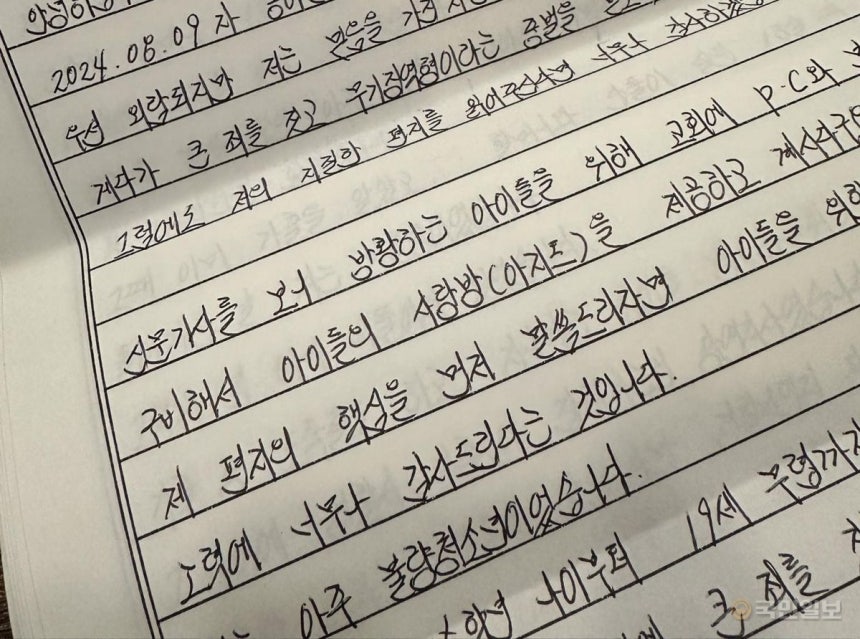 2024.08.09자
우선 외람되지만 저는 믿음을 가진
게다가 큰 죄를 짓고 무기징역형이라는 중벌을
그럼에도 저의 지절한 편지를 읽어주신다면 너무나 감사하겠
신문기사를 보니 방황하는 아이들을 위해 교회에 P.C와
구비해서 아이들의 사랑방(아지트)을 제공하고 계시다구
제 편지의 핵심을 먼저 말씀드리자면 아이들을 위
노력에 너무나 감사드린다는 것입니다.
아주 불량청소년이었습니다.
학년 나이부터 19세 무렵까지
큰 죄를
국민일보